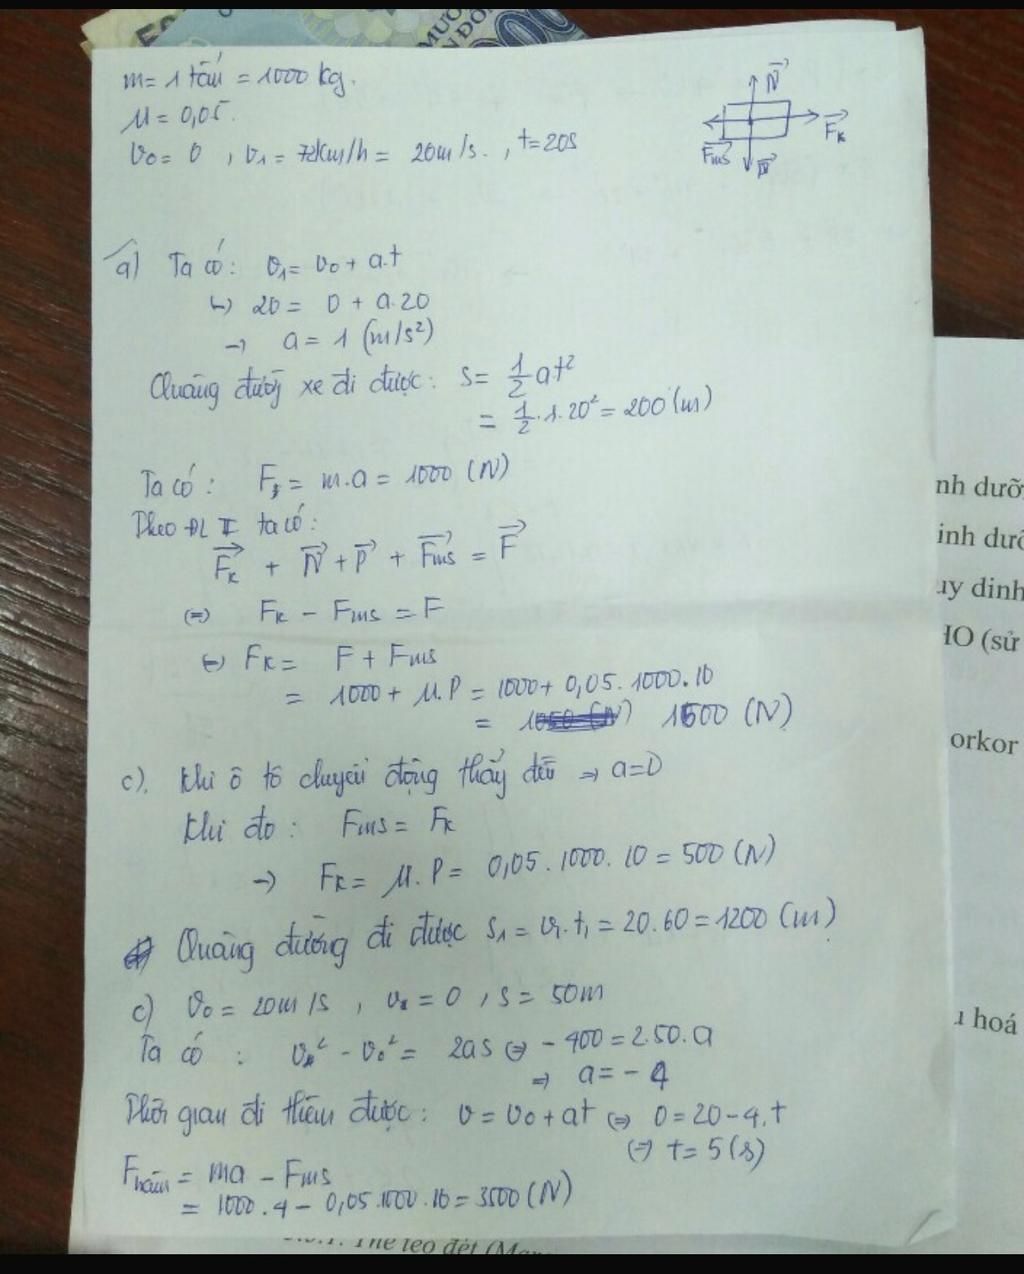 m = 1 tấn = 1000 kg.
μ = 0,05.
v₀ = 0 , v₁ = 72km/h = 20m/s. , t = 20s
N⃗
F⃗k
F⃗ms
P⃗
a) Ta có: v₁ = v₀ + a.t
↪ 20 = 0 + a.20
→ a = 1 (m/s²)
Quãng đường xe đi được: s = 1/2 at²
= 1/2 . 1. 20² = 200 (m)
Ta có: F = m.a = 1000 (N)
Theo ĐL II ta có:
F⃗k + N⃗ + P⃗ + F⃗ms = F⃗
⇔ Fk - Fms = F
⇔ Fk = F + Fms
= 1000 + μ.P = 1000 + 0,05. 1000.10
= 1500 (N)
c). Khi ô tô chuyển động thẳng đều ⇒ a=0
Khi đó : Fms = Fk
→ Fk = μ.P = 0,05. 1000. 10 = 500 (N)
Quãng đường đi được s₁ = v₁.t₁ = 20.60 = 1200 (m)
c) v₀ = 20m/s , v = 0 , s = 50m
Ta có : v² - v₀² = 2as ⇔ - 400 = 2.50.a
⇒ a = - 4
Thời gian đi thêm được: v = v₀ + at ⇔ 0 = 20 - 4.t
⇔ t = 5 (s)
Fhãm = ma - Fms
= 1000.4 - 0,05.1000.10 = 3500 (N)
nh dưỡ
inh dưỡ
uy dinh
HO (sử
orkor
u hoá